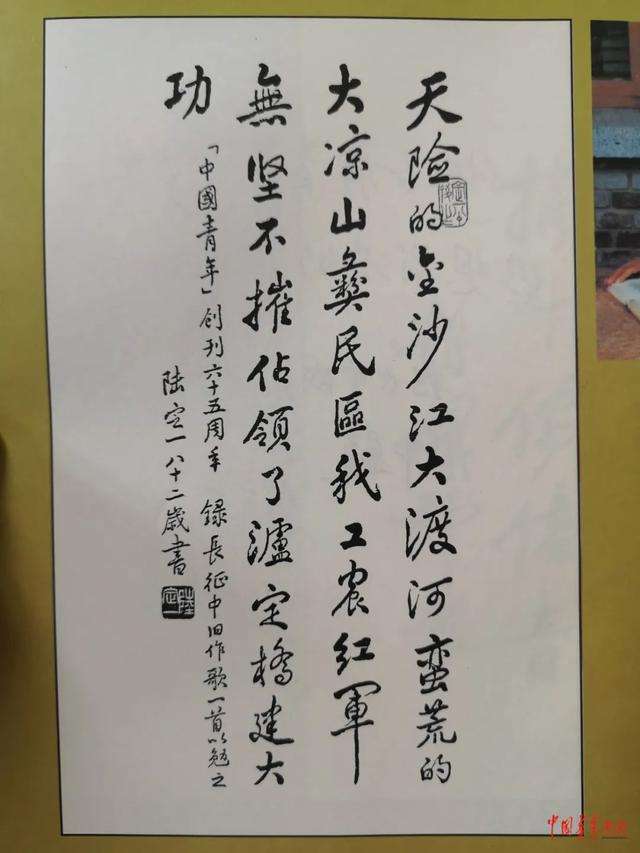 天险的金沙江大渡河蛮荒的
大凉山彝民區我工农红軍
無坚不摧佔領了瀘定橋建大
功
「中國青年」創刊六十五周年　録長征中旧作歌一首以勉之
陆定一八十二歲書
陸定一